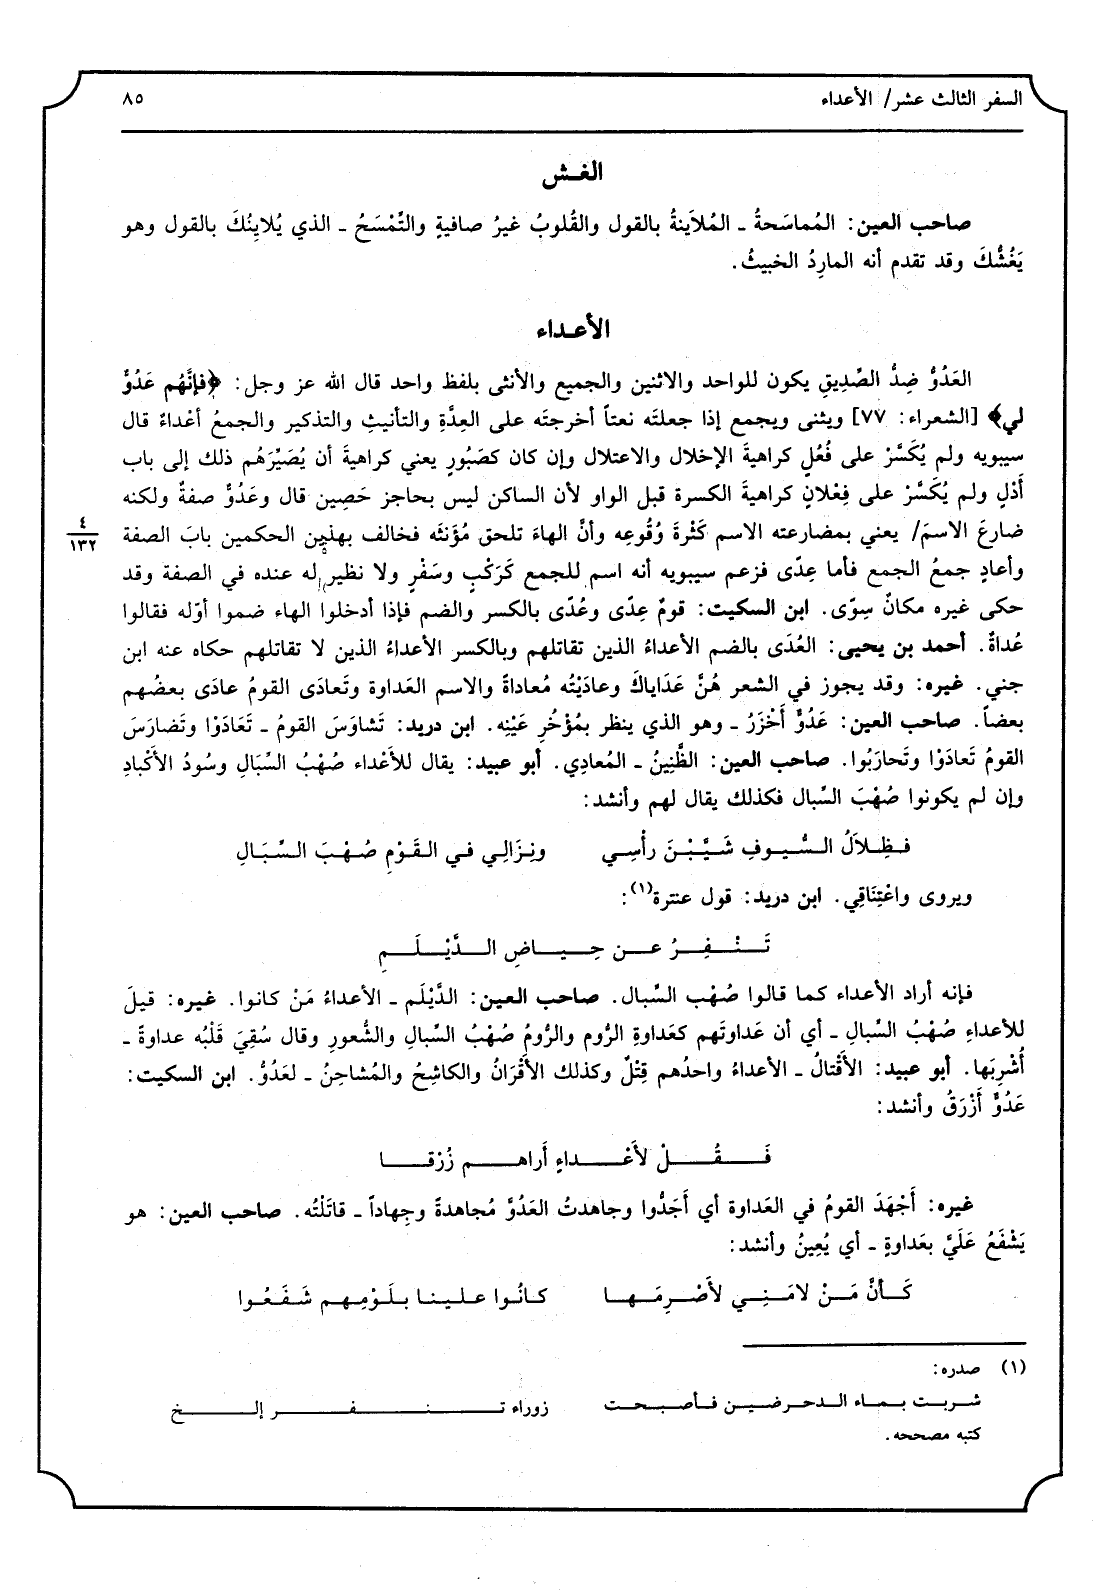 السفر الثالث عشر/ الأعداء ٨٥
الغش
صاحب العين: المُماسَحةُ ـ المُلاَينةُ بالقول والقُلوبُ غيرُ صافيةٍ والتِّمْسَحُ ـ الذي يُلايِنُكَ بالقول وهو
يَغُشُّكَ وقد تقدم أنه المارِدُ الخبيثُ.
الأعداء
العَدُوُّ ضِدُّ الصِّدِيقِ يكون للواحد والاثنين والجميع والأنثى بلفظ واحد قال الله عز وجل: ﴿فإنَّهُم عَدُوٌّ
لي﴾ [الشعراء: ٧٧] ويثنى ويجمع إذا جعلتَه نعتاً أخرجتَه على العِدَّةِ والتأنيثِ والتذكير والجمعُ أعْداءٌ قال
سيبويه ولم يُكَسَّرْ على فُعُلٍ كراهيةَ الإخلال والاعتلال وإن كان كصَبُورٍ يعني كراهيةَ أن يُصَيِّرَهُم ذلك إلى باب
أَدْلٍ ولم يُكَسَّرْ على فِعْلانٍ كراهيةَ الكسرة قبل الواو لأن الساكن ليس بحاجز حَصِين قال وعَدُوٌّ صفةٌ ولكنه
ضارعَ الاسمَ/ يعني بمضارعته الاسم كَثْرةَ وُقُوعِه وأنَّ الهاءَ تلحق مُؤَنثَه فخالف بهذين الحكمين بابَ الصفة
٤
١٣٢
وأعادٍ جمعُ الجمع فأما عِدًى فزعم سيبويه أنه اسم للجمع كَرَكْبٍ وسَفْرٍ ولا نظير له عنده في الصفة وقد
حكى غيره مكانٌ سِوًى. ابن السكيت: قومٌ عِدًى وعُدًى بالكسر والضم فإذا أدخلوا الهاء ضموا أوّله فقالوا
عُداةٌ. أحمد بن يحيى: العُدَى بالضم الأعداءُ الذين تقاتلهم وبالكسر الأعداءُ الذين لا تقاتلهم حكاه عنه ابن
جني. غيره: وقد يجوز في الشعر هُنَّ عَدَاياكَ وعاديْتُه مُعاداةً والاسم العَداوة وتَعادَى القومُ عادَى بعضُهم
بعضاً. صاحب العين: عَدُوٌّ أَخْزَرُ ـ وهو الذي ينظر بمُؤْخُرِ عَيْنِه. ابن دريد: تَشاوَسَ القومُ ـ تَعَادَوْا وتَضارَسَ
القومُ تَعادَوْا وتَحارَبُوا. صاحب العين: الظَّنِينُ ـ المُعادِي. أبو عبيد: يقال للأعْداء صُهْبُ السِّبَالِ وسُودُ الأَكْبادِ
وإن لم يكونوا صُهْبَ السِّبال فكذلك يقال لهم وأنشد:
فظِلاَلُ السُّيوفِ شَيَّبْنَ رأْسِي ونِزَالِي في القَوْمِ صُهْبَ السِّبَالِ
ويروى واعْتِنَاقِي. ابن دريد: قول عنترة(١):
تَنْفِرُ عن حِياضِ الدَّيْلَمِ
فإنه أراد الأعداء كما قالوا صُهْب السِّبال. صاحب العين: الدَّيْلَم ـ الأعداءُ مَنْ كانوا. غيره: قيلَ
للأعداءِ صُهْبُ السِّبالِ ـ أي أن عَداوتَهم كعَداوةِ الرُّوم والرُّومُ صُهْبُ السِّبالِ والشُّعورِ وقال سُقِيَ قَلْبُه عداوةً ـ
أُشْرِبَها. أبو عبيد: الأَقْتالُ ـ الأعداءُ واحدُهم قِتْلٌ وكذلك الأقْرَانُ والكاشِحُ والمُشاحِنُ ـ لعَدُوُّ. ابن السكيت:
عَدُوٌّ أَزْرَقُ وأنشد:
فَقُلْ لأَعْداءٍ أَراهم زُرْقا
غيره: أَجْهَدَ القومُ في العَداوة أي أَجَدُّوا وجاهدتُ العَدُوَّ مُجاهدةً وجِهاداً ـ قاتَلْتُه. صاحب العين: هو
يَشْفَعُ عَلَيَّ بعَداوةٍ ـ أي يُعِينُ وأنشد:
كَأنَّ مَنْ لامَنِي لأَصْرِمَها كانُوا علينا بلَوْمِهم شَفَعُوا
(١) صدره:
شربت بماء الدحرضين فأصبحت زوراء تنفر إلخ
كتبه مصححه.